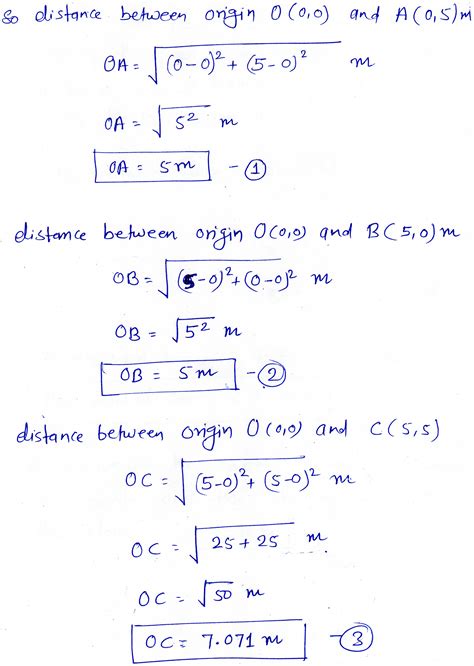 So distance between origin O(0,0) and A(0,5)m
OA = √((0-0)² + (5-0)²) m
OA = √(5²) m
OA = 5m - ①
distance between origin O(0,0) and B(5,0)m
OB = √((5-0)²+(0-0)²) m
OB = √(5²) m
OB = 5m - ②
distance between origin O(0,0) and C(5,5)
OC = √((5-0)²+(5-0)²) m
OC = √(25+25) m
OC = √50 m
OC = 7.071 m - ③